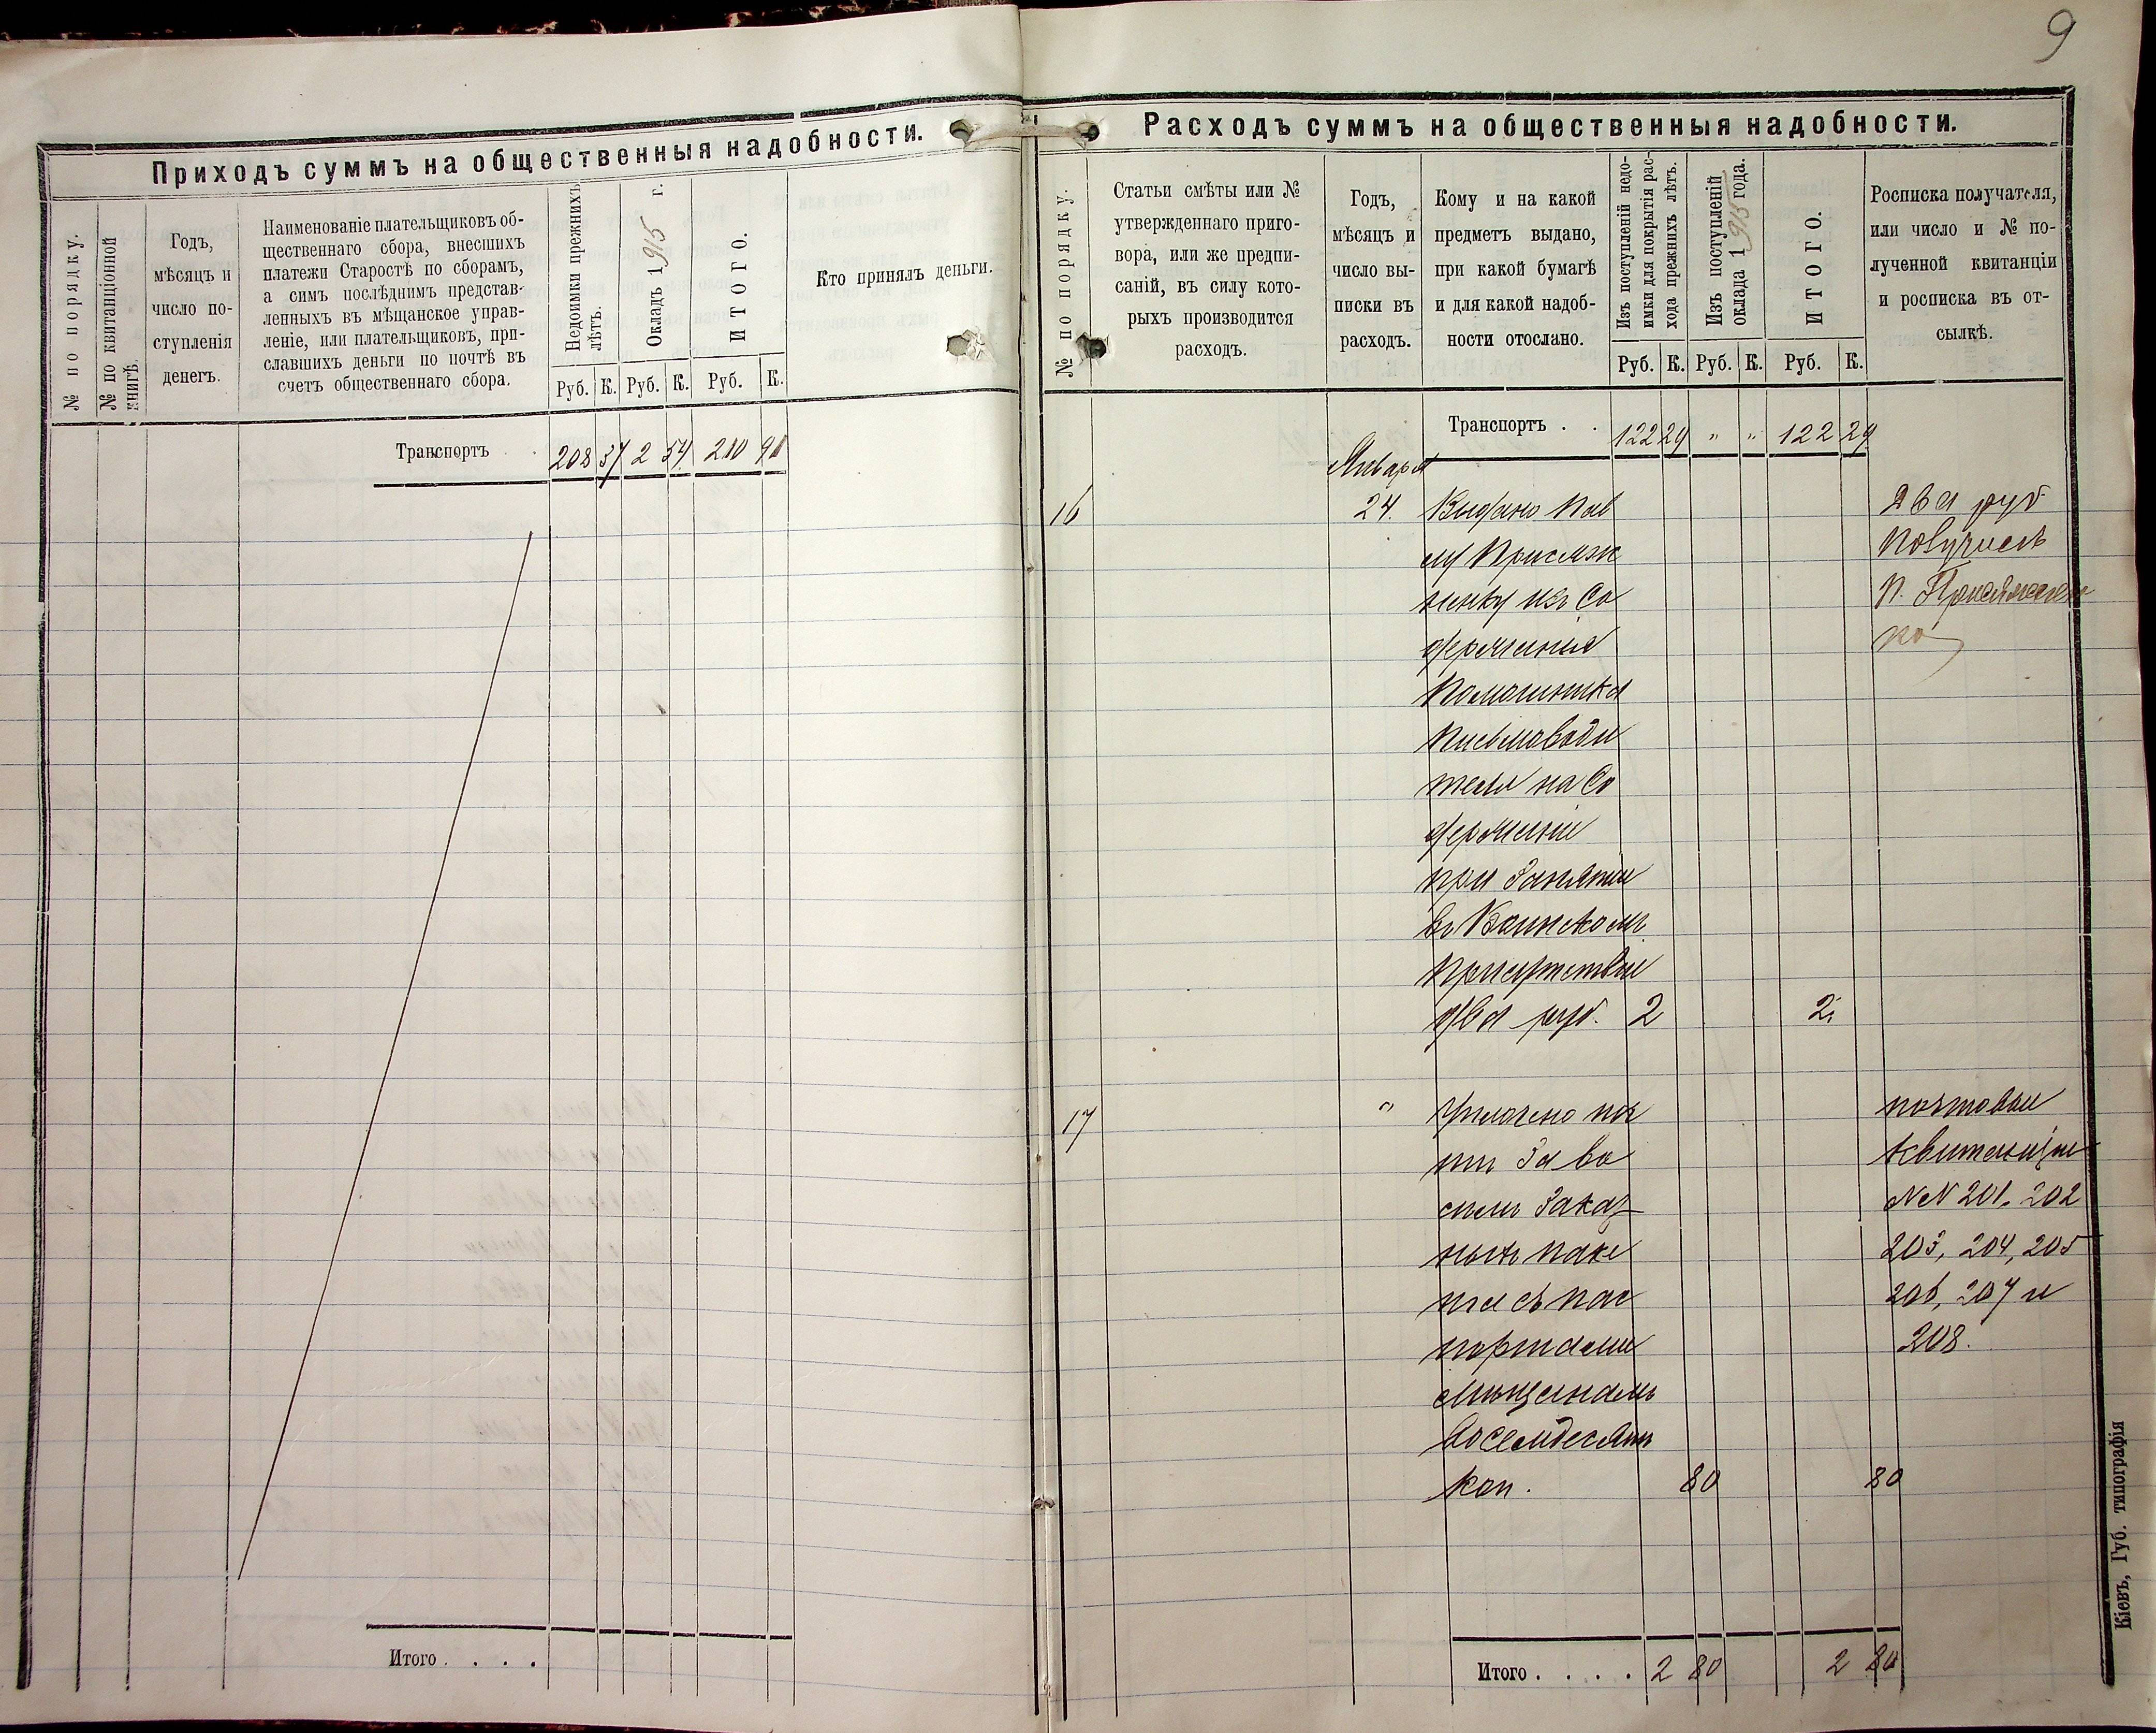 9
Приходъ суммъ на общественныя надобности.
№ по порядку.
№ по квитанціонной
книгѣ.
Годъ,
мѣсяцъ и
число по-
ступленія
денегъ.
Наименованіе плательщиковъ об-
щественнаго сбора, внесшихъ
платежи Старостѣ по сборамъ,
а симъ послѣднимъ представ-
ленныхъ въ мѣщанское управ-
леніе, или плательщиковъ, при-
славшихъ деньги по почтѣ въ
счетъ общественнаго сбора.
Недоимки прежнихъ
лѣтъ.
Окладъ 1915 г.
ИТОГО.
Руб. К. Руб. К. Руб. К.
Кто принялъ деньги.
Транспортъ 208 37 2 54 210 91
Итого . . . .
Расходъ суммъ на общественныя надобности.
№ по порядку.
Статьи смѣты или №
утвержденнаго приго-
вора, или же предпи-
саній, въ силу кото-
рыхъ производится
расходъ.
Годъ,
мѣсяцъ и
число вы-
писки въ
расходъ.
Кому и на какой
предметъ выдано,
при какой бумагѣ
и для какой надоб-
ности отослано.
Изъ поступленій недо-
имки для покрытія рас-
хода прежнихъ лѣтъ.
Изъ поступленій
оклада 1915 года.
ИТОГО.
Руб. К. Руб. К. Руб. К.
Росписка получателя,
или число и № по-
лученной квитанціи
и росписка въ от-
сылкѣ.
Транспортъ . . 122 29 " " 122 29
Января
16 24. Выдано Пав
лу Присяж
нику изъ Со
держанія
Помощника
Письмоводи
теля на Со
держаніи
при Занятіи
въ Воинскомъ
Присутствіи
два руб. 2 2
Два руб
Получилъ
П.
ко
17 " Уплочено поч
ти За во
семь Заказ
ныхъ паке
товъ съ пас
портами
Мѣщанамъ
восемдесятъ
коп. 80 80
почтовыи
Квитанціи
№№ 201, 202
203, 204, 205
206, 207 и
208.
Итого . . . . 2 80 2 80
Кіевъ, Губ. типографія